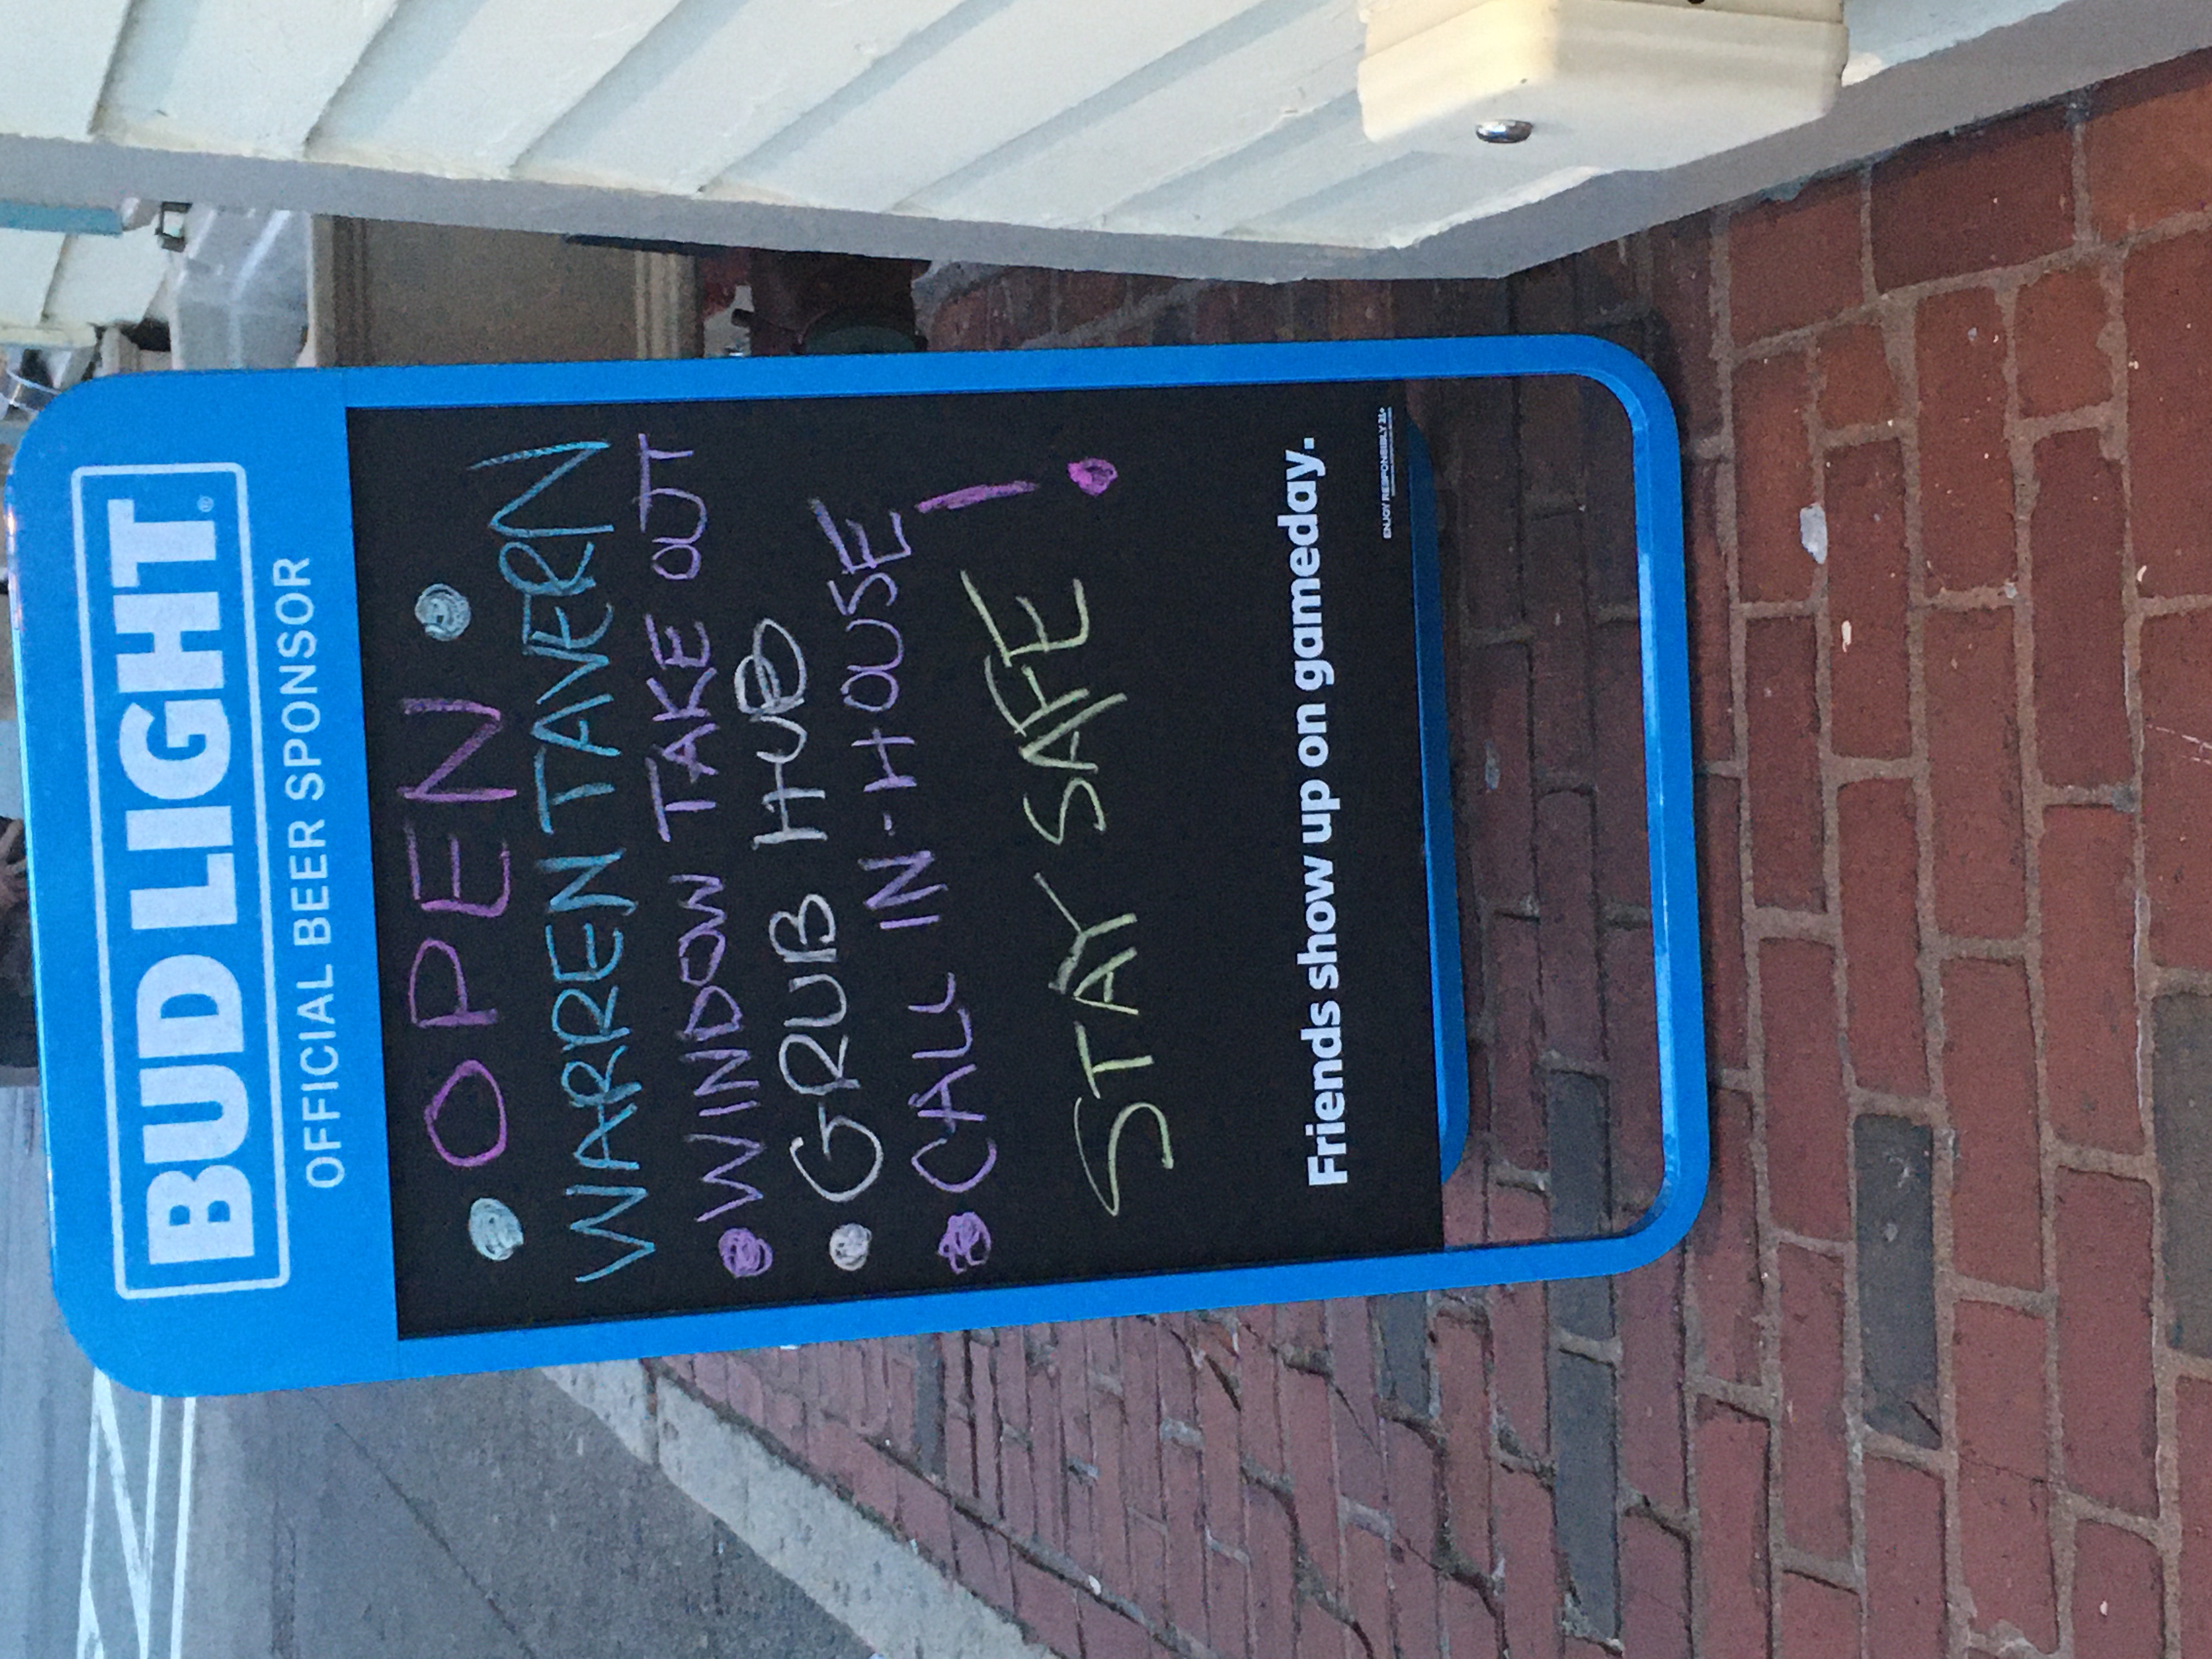 BUD LIGHT
OFFICIAL BEER SPONSOR
OPEN
WARREN TAVERN
WINDOW TAKE OUT
GRUB HUB
CALL IN-HOUSE
STAY SAFE!
Friends show up on gameday.
ENJOY RESPONSIBLY 21+